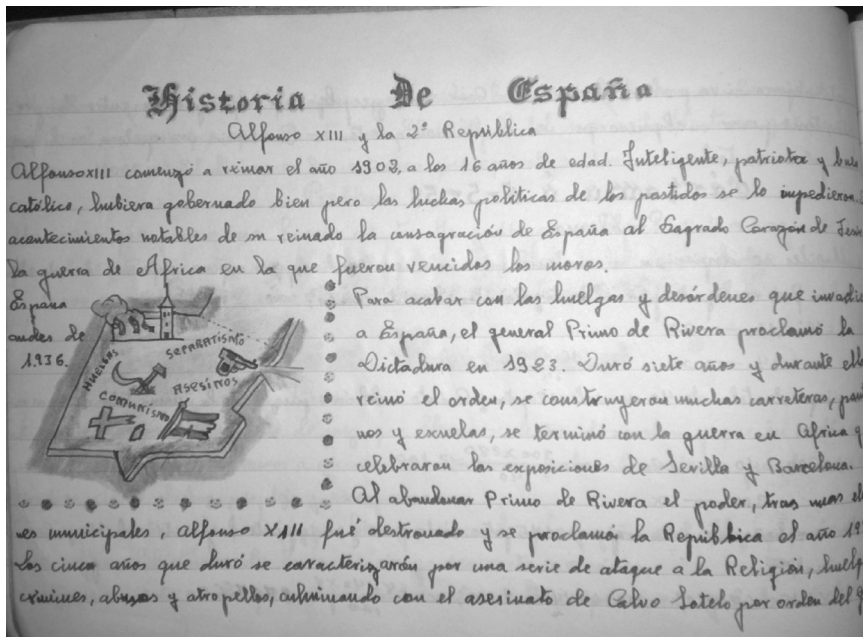 Historia De España
Alfonso XIII y la 2ª República
Alfonso XIII comenzó a reinar el año 1902, a los 16 años de edad. Inteligente, patriota y buen
católico, hubiera gobernado bien pero las luchas políticas de los partidos se lo impidieron.
acontecimientos notables de su reinado la consagración de España al Sagrado Corazón de Jesús
la guerra de África en la que fueron vencidos los moros.
España
antes de
1.936.
HUELGAS
SEPARATISMO
ASESINOS
COMUNISMO
Para acabar con las huelgas y desórdenes que invadí
a España, el general Primo de Rivera proclamó la
Dictadura en 1923. Duró siete años y durante ell
reinó el orden, se construyeron muchas carreteras, pan
nos y escuelas, se terminó con la guerra en Africa y
celebraron las exposiciones de Sevilla y Barcelona.
Al abandonar Primo de Rivera el poder, tras unas el
nes municipales, Alfonso XIII fué destronado y se proclamó la República el año 19
Los cinco años que duró se caracterizarón por una serie de ataque a la Religión, huelg
crímines, abusos y atropellos, culminando con el asesinato de Calvo Sotelo por orden del g